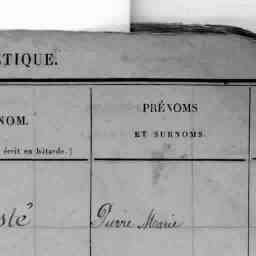 TIQUE.
NOM.
PRÉNOMS
ET SURNOMS.
écrit en bâtarde.)
sté
Pierre Marie